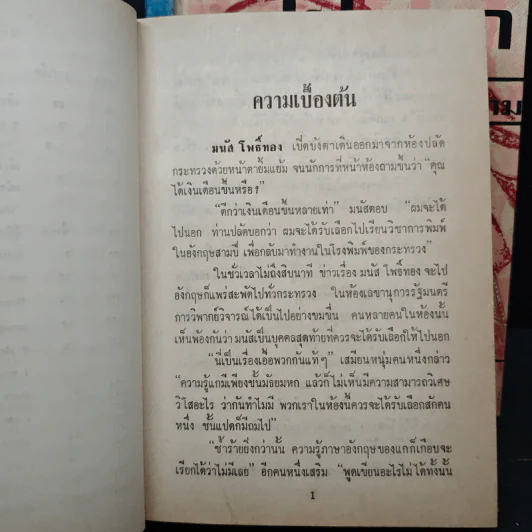 ความเบื้องต้น
มนัส โพธิ์ทอง เปิดบังตาเดินออกมาจากห้องปลัด
กระทรวงด้วยหน้าตายิ้มแย้ม จนนักการที่หน้าห้องถามขึ้นว่า “คุณ
ได้เงินเดือนขึ้นหรือ?”
“ดีกว่าเงินเดือนขึ้นหลายเท่า” มนัสตอบ “ผมจะได้
ไปนอก ท่านปลัดบอกว่า ผมจะได้รับเลือกไปเรียนวิชาการพิมพ์
ในอังกฤษสามปี เพื่อกลับมาทำงานในโรงพิมพ์ของกระทรวง”
ในชั่วเวลาไม่ถึงสิบนาที ข่าวเรื่อง มนัส โพธิ์ทอง จะไป
อังกฤษก็แพร่สะพัดไปทั่วกระทรวง ในห้องเลขานุการรัฐมนตรี
การวิพากย์วิจารณ์ได้เป็นไปอย่างขมขื่น คนหลายคนในห้องนั้น
เห็นพ้องกันว่า มนัสเป็นบุคคลสุดท้ายที่ควรจะได้รับเลือกให้ไปนอก
“นี่เป็นเรื่องเอื้อพวกกันแท้ๆ” เสมียนหนุ่มคนหนึ่งกล่าว
“ความรู้แกมีเพียงชั้นมัธยมหก แล้วก็ไม่เห็นมีความสามารถวิเศษ
วิโสอะไร ว่ากันทำไมมี พวกเราในห้องนี้ควรจะได้รับเลือกสักคน
หนึ่ง ชั้นแปดก็มีถมไป”
“ซ้ำร้ายยิ่งกว่านั้น ความรู้ภาษาอังกฤษของแกก็เกือบจะ
เรียกได้ว่าไม่มีเลย” อีกคนหนึ่งเสริม “พูดเขียนอะไรไม่ได้ทั้งนั้น
1